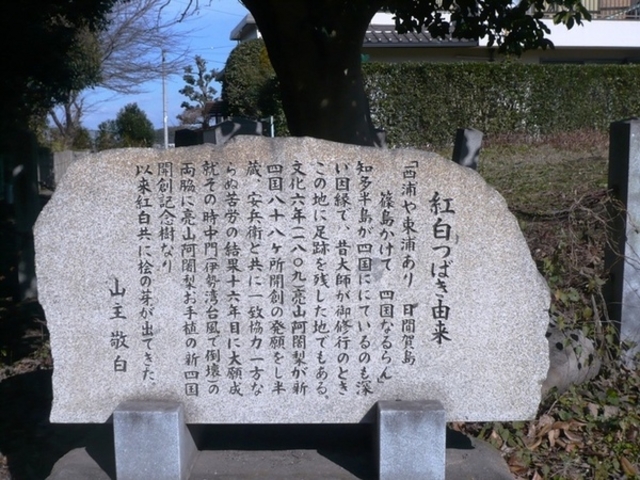 紅白つばき由来
「西浦や東浦あり 日間賀島
篠島かけて 四国なるらん」
知多半島が四国ににているのも深
い因縁で、昔大師が御修行のとき
この地に足跡を残した地でもある。
文化六年(一八〇九)亮山阿闍梨が新
四国八十八ヶ所開創の発願をし半
蔵、安兵衛と共に一致協力一方な
らぬ苦労の結果十六年目に大願成
就その時中門(伊勢湾台風で倒壊)の
両脇に亮山阿闍梨お手植の新四国
開創記念樹なり
以来紅白共に桧の芽が出てきた
山主 敬白